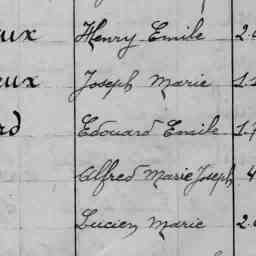 eux Henry Emile 2.
eux Joseph Marie 1.
rd Edouard Emile 1.7
Alfred Marie Joseph 4
Lucien Marie 2.